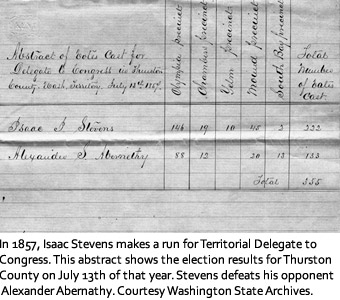 Abstract of Votes Cast for
Delegate to Congress in Thurston
County, Wash. Territory, July 13th 1857.
Olympia precinct
Chambers precinct
Yelm precincts
Mound precinct
South Bay precinct
Total
Number
of votes
Cast.
Isaac I. Stevens 146 19 10 45 2 222
Alexander S. Abernethy 88 12 20 13 133
Total 355
In 1857, Isaac Stevens makes a run for Territorial Delegate to
Congress. This abstract shows the election results for Thurston
County on July 13th of that year. Stevens defeats his opponent
Alexander Abernathy. Courtesy Washington State Archives.